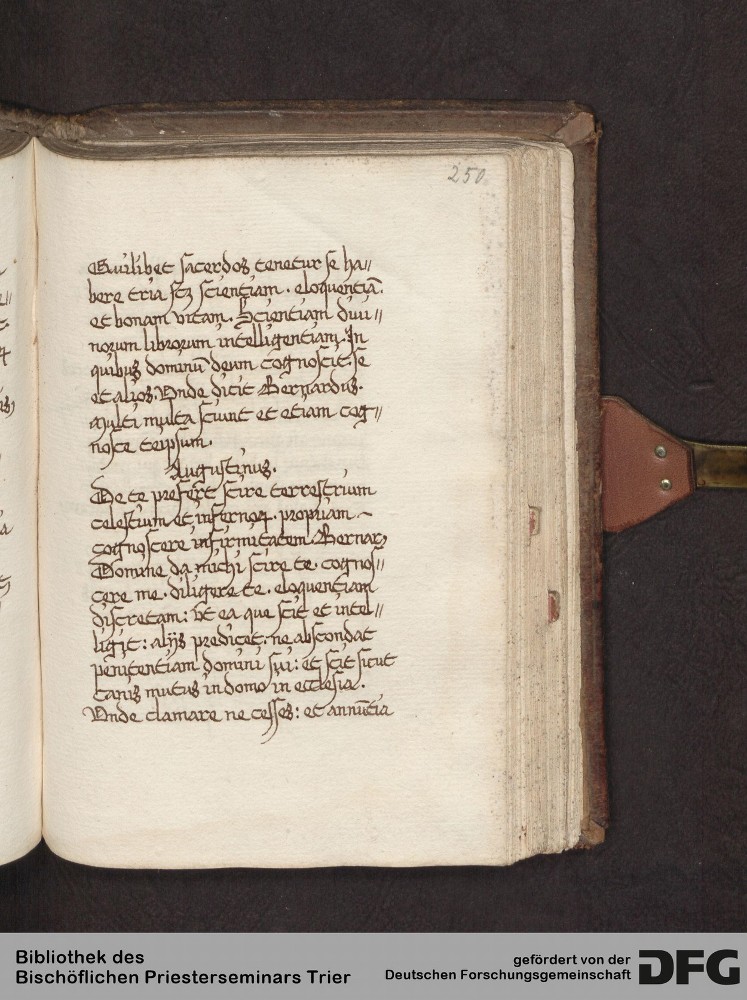 250
Quilibet sacerdos tenetur se ha//
bere tria scz scientiam . eloquentiā.
et bonam vitam. Scientiam diui//
norum librorum intelligentiam. In
quibus dominū deum cognoscit. se
et alios. Vnde dicit Bernardus.
Multi multa sciunt et etiam cog//
nosce teipsum.
Augustinus.
De te prefert scire terrestrium
celestium et infernoꝝ. propriam
cognoscere infirmitatem. Bernar
Domine da michi scire te. cognos//
cere me. diligere te. eloquentiam
discretam: vt ea que scit et intel//
ligit: alijs predicet. ne abscondat
penitentiam domini sui: et scit sicut
canis mutus in domo in ecclesia.
Vnde clamare ne cesses: et annūcia
Bibliothek des
Bischöflichen Priesterseminars Trier
gefördert von der
Deutschen Forschungsgemeinschaft
DFG